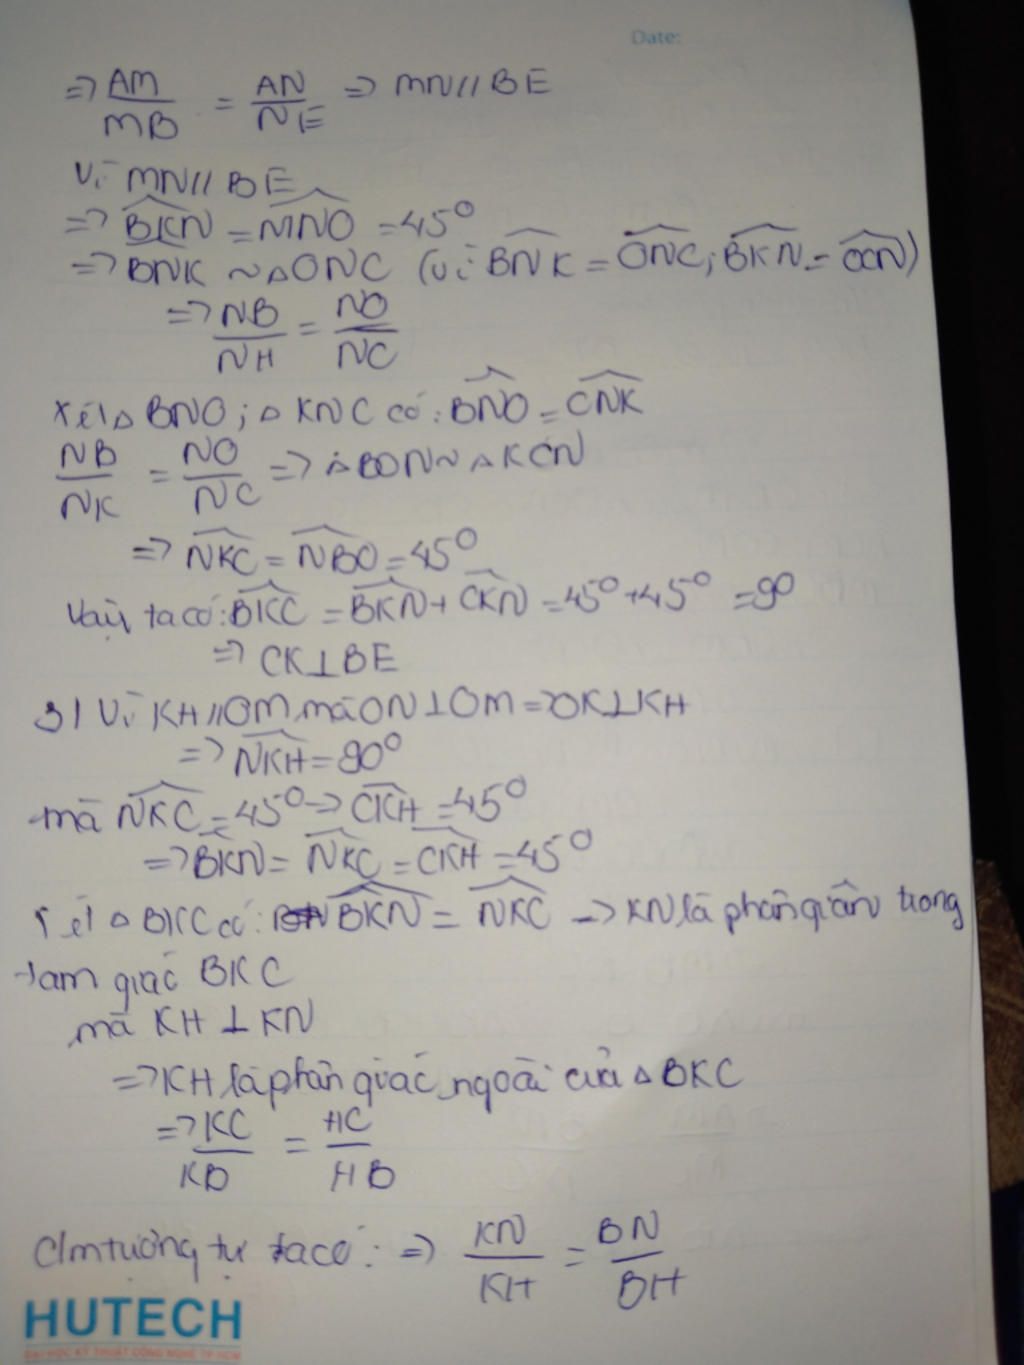 Date:
=> AM/MB = AN/NE => MN//BE
Vì MN//BE
=> BKN = MNO = 45°
=> BNK ~ △ONC (vì BNK = ONC; BKN = OCN)
=> NB/NH = NO/NC
Xét △BNO; △KNC có: BNO = CNK
NB/NK = NO/NC => △BON ~ △KCN
=> NKC = NBO = 45°
Vậy ta có: BKC = BKN + CKN = 45° + 45° = 90
=> CK⊥BE
3/ Vì KH//OM mà ON⊥OM => OK⊥KH
=> NKH = 90°
mà NKC = 45° -> CKH = 45°
=> BKN = NKC = CKH = 45°
Xét △BKC có: BKN = NKC -> KN là phân giác trong
tam giác BKC
mà KH ⊥ KN
=> KH là phân giác ngoài của △BKC
=> KC/KB = HC/HB
C/m tương tự ta có: => KN/KH = BN/BH
HUTECH
ĐẠI HỌC KỸ THUẬT CÔNG NGHỆ TP.HCM